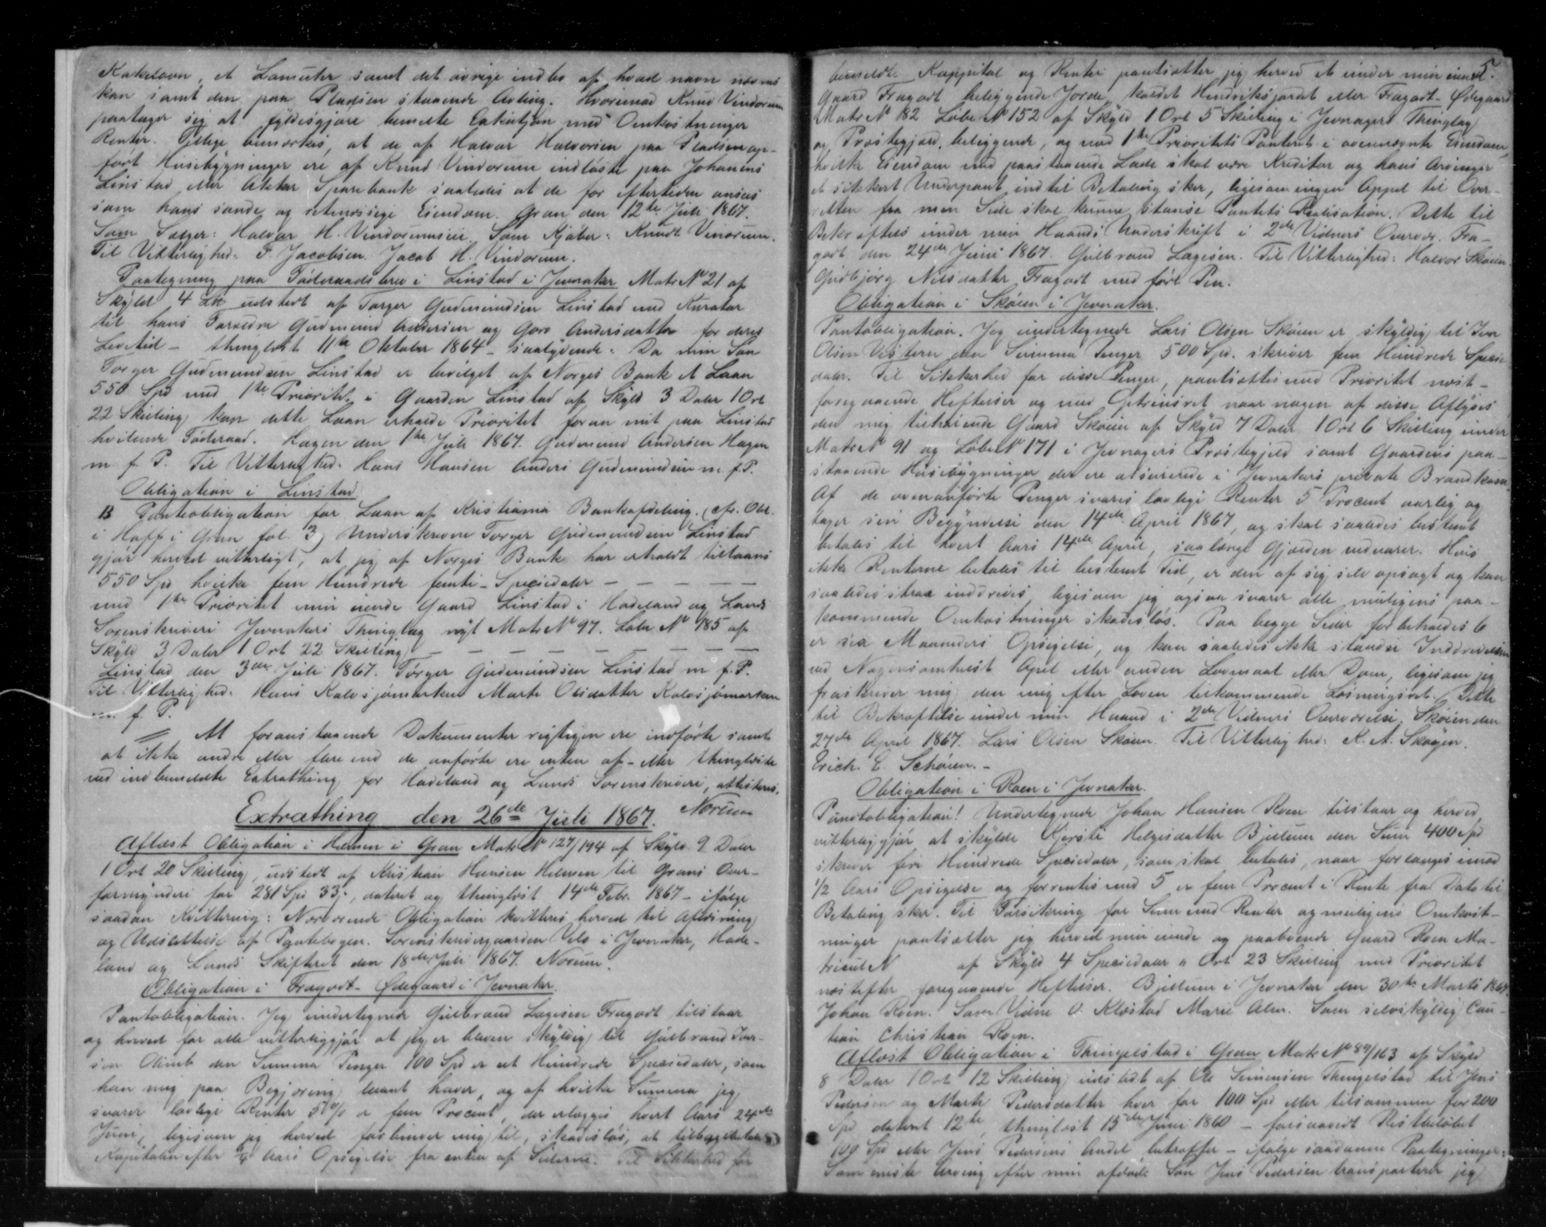 Kakelovn, et Lameter samt det øvrige indbo af hvad navn nævnes
kan samt den paa Pladsen staaende Avling. Hvorimod Knud Vindorum
paatager sig at fyldestgjøre bemeldte Exekution med Omkostninger
Renter. Tillige bemærkes, at de af Halvor Halvorsen paa Pladsen op-
ført Husebygninger ere af Knud Vindorum indløste paa Johannes
Linstad, eller Aktær Sparebank saaledes at de for Eftertiden ansees
som hans sande og retmæssige Eiendom. Gran den 12te Juli 1867.
Som Sælger: Halvor H. Vindorumseie Som Kjøber: Knudt Vinorum.
Til Vitterlighed: F. Jacobsen Jacob H. Vindorum.
Paategning paa Føderaadsbrev i Linstad i Jevnaker Matr No 21 af
Skyld 4 udstedt af Torger Gudmundsen Linstad med Kurator
til hans Forældre Gudmund Andersen og Goro Andersdatter for deres
Levetid - thinglæst 11te Oktober 1864 - saalydende: Da min Søn
Torger Gudmundsen Linstad er bevilget af Norges Bank et Laan
550 Spd med 1ste Prioritet i Gaarden Linstad af Skyld 3 Daler 1 Ort
22 Skilling kan dette Laan erholde Prioritet foran mit paa Linstad
hvilende Føderaad. Hagen den 1ste Juli 1867. Gudmund Andersen Hagen
m. f. P. Til Vitterlighed: Hans Hansen Anders Gudmundsen m. f. P.
Obligation i Linstad
B Panteobligation for Laan af Kristiania Bankafdeling. (cfr. Obl.
i Hoff i Gran fol 3) Underskrevne Torger Gudmundsen Linstad
gjør herved vitterligt, at jeg af Norges Bank har erholdt tillaans
550 Spd hvilke fem Hundrede femti Speciedaler - - - - -
med 1ste Prioritet min eiende Gaard Linstad i Hadeland og Lands
Sorenskriveri Jevnakers Thinglag nyt Matr No 97. Løbe No 185 af
Skyld 3 Daler 1 Ort 22 Skilling - - - - - -
Linstad den 3die Juli 1867. Torger Gudmundsen Linstad m. f. P.
Til Vitterlighed: Hans Kalvsjømarken Marte Olsdatter Kalvsjømarken
m. f. P.
At foranstaaende Dokumenter rigtigen ere indførte samt
at ikke andre eller flere end de anførte ere enten af- eller thinglæste
ved indbemeldte Extrathing for Hadeland og Lands Sorenskriveri, attesteres.
Norum
Extrathing den 26de Juli 1867.
Aflæst Obligation i Helmen i Gran Matr No 127/194 af Skyld 2 Daler
1 Ort 20 Skilling, udstedt af Kristian Hansen Helmen til Grans Over-
formynderi for 281 Spd 33 , dateret og thinglæst 14de Febr. 1867 - ifølge
saadan Kvittering: Nærværende Obligation kvitteres herved til Aflæsning
og Udslettelse af Pantebogen. Sorenskrivergaarden Velo i Jevnaker, Hade-
land og Lands Skifteret den 18de Juli 1867. Norum.
Obligation i Fragodt-Ødegaard i Jevnaker.
Pantobligation. Jeg undertegnede Gulbrand Lagesen Fragodt tilstaar
og herved for alle vitterliggjør at jeg er bleven skyldig til Gulbrand Iver-
sen den Summa Penger 100 Spd er et Hundrede Speciedaler, som
han mig paa Begjæring laant haver, og af hvilke Summa jeg
svarer lovlige Renter 5% er fem Procent, der erlægges hvert Aars 24de
Juni, ligesom jeg herved forbinder mig til, skadesløs, at tilbagebetale
Kapitalen efter 1/4 Aars Opsigelse fra enten af Siderne. Til Sikkerhed for
5.
bemeldte Kapital og Renter pantsætter jeg herved et under min eiende
Gaard Fragodt beliggende Jorde, kaldet Hendriksjordet eller Fragodt-Ødegaard
Matr No 82 Løbe No 152 af Skyld 1 Ort 5 Skilling i Jevnagers Thinglag
og Præstegjeld, beliggende, og med 1ste Prioritets Panteret i ovennævnte Eiendom,
hvilke Eiendom med paastaaende Lade skal være Kreditor og hans Arvinger
et sikkert Underpant, indtil Betaling sker, ligesom ingen Appel til Over-
retten fra min Side skal kunne standse Pantets Realisation. Dette til
Bekræftelse under min Haands Underskrift i 2de Vidners Overvær. Fra-
godt den 24de Juni 1867. Gulbrand Lagesen. Til Vitterlighed: Halvor Skøien
Gudbjørg Nilsdatter Fragodt med ført Pen.
Obligation i Skøien i Jevnaker.
Pantobligation. Jeg undertegnede Lars Olsen Skøien er skyldig til Iver
Olsen Vestern den Summa Penger 500 Spd. skriver fem Hundrede Specie-
daler. Til Sikkerhed for disse Penger, pantsættes med Prioritet næst-
foregaaende Heftelser og med Optrinsret naar nogen af disse Aflyses
den mig tilhørende Gaard Skøien af Skyld 7 Daler 1 Ort 6 Skilling under
Matr No 91 og Løbe No 171 i Jevnagers Præstegjeld samt Gaardens paa-
staaende Husebygninger der ere assurerede i Jevnakers private Brandkasse.
Af de ovenanførte Penger svares lovlige Renter 5 Procent aarlig og
tager sin Begyndelse den 14de April 1867, og skal saaledes bestemt
betales til hvert Aars 14de April, saalænge Gjælden indvarer. Hvis
ikke Renterne betales til bestemt Tid, er den af sig selv opsagt og kan
saaledes strax inddrives, ligesom jeg ogsaa svarer alle muligens paa-
kommende Omkostninger skadesløs. Paa begge Sider forbeholdes 6
er sex Maaneders Opsigelse, og kan saaledes ikke standse Inddrivelsen
ved Nøisomhedst Apel eller anden Lovemaal eller Dom, ligesom jeg
fraskriver mig den mig efter Loven tilkommende Løsningsret. Dette
til Bekræftelse under min Haand i 2de Vidners Overværelse. Skøien den
27de April 1867. Lars Olsen Skøien. Til Vitterlighed: K. A. Skøyen.
Erich E. Schøien.-
Obligation i Roen i Jevnaker.
Pandtobligation! Undertegnede Johan Hansen Roen tilstaar og herved
vitterliggjør, at skylde Kjersti Helgesdatter Bjellum den Sum 400 Spd
skriver fire Hundrede Speciedaler, som skal betales, naar forlanges imod
1/2 Aars Opsigelse og forrentes med 5 er fem Procent i Rente fra Dato til
Betaling sker. Til Forsikring for Sum med Renter og muligens Omkost-
ninger pantsætter jeg herved min eiende og paaboende Gaard Roen Ma-
trikul N af Skyld 4 Speciedaler 0 Ort 23 Skilling med Prioritet
næstefter foregaaende Heftelser. Bjellum i Jevnaker den 30te Marts 1867.
Johan Roen. Som Vidne O. Klæstad Marie Alm. Som selvskyldig Cau-
tion Christian Roen.
Aflæst Obligation i Thingelstad i Gran Matr No 89/163 af Skyld
8 Daler 1 Ort 12 Skilling udstedt af Ole Simensen Thingelstad til Jens
Pedersen og Marte Pedersdatter hver for 100 Spd eller tilsammen for 200
Spd dateret 12te, thinglæst 15de Juni 1860 - forsaavidt Restbeløbet
100 Spd eller Jens Pedersens Andel betræffer - ifølge saadanne Paategninger:
Som eneste Arving efter min afdøde Søn Jens Pedersen transporterer jeg